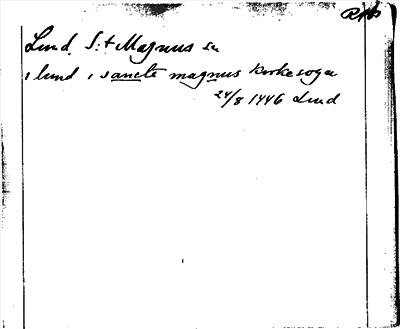 Lund. S:t Magnus sn
i lund i sancte magnus kirkesogn
24/8 1446 Lund